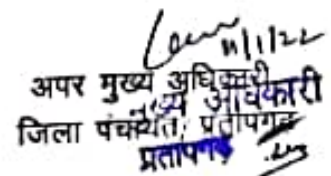 11/1/22
अपर मुख्य अधिकारी
जिला पंचायत, प्रतापगढ़
प्रतापगढ़